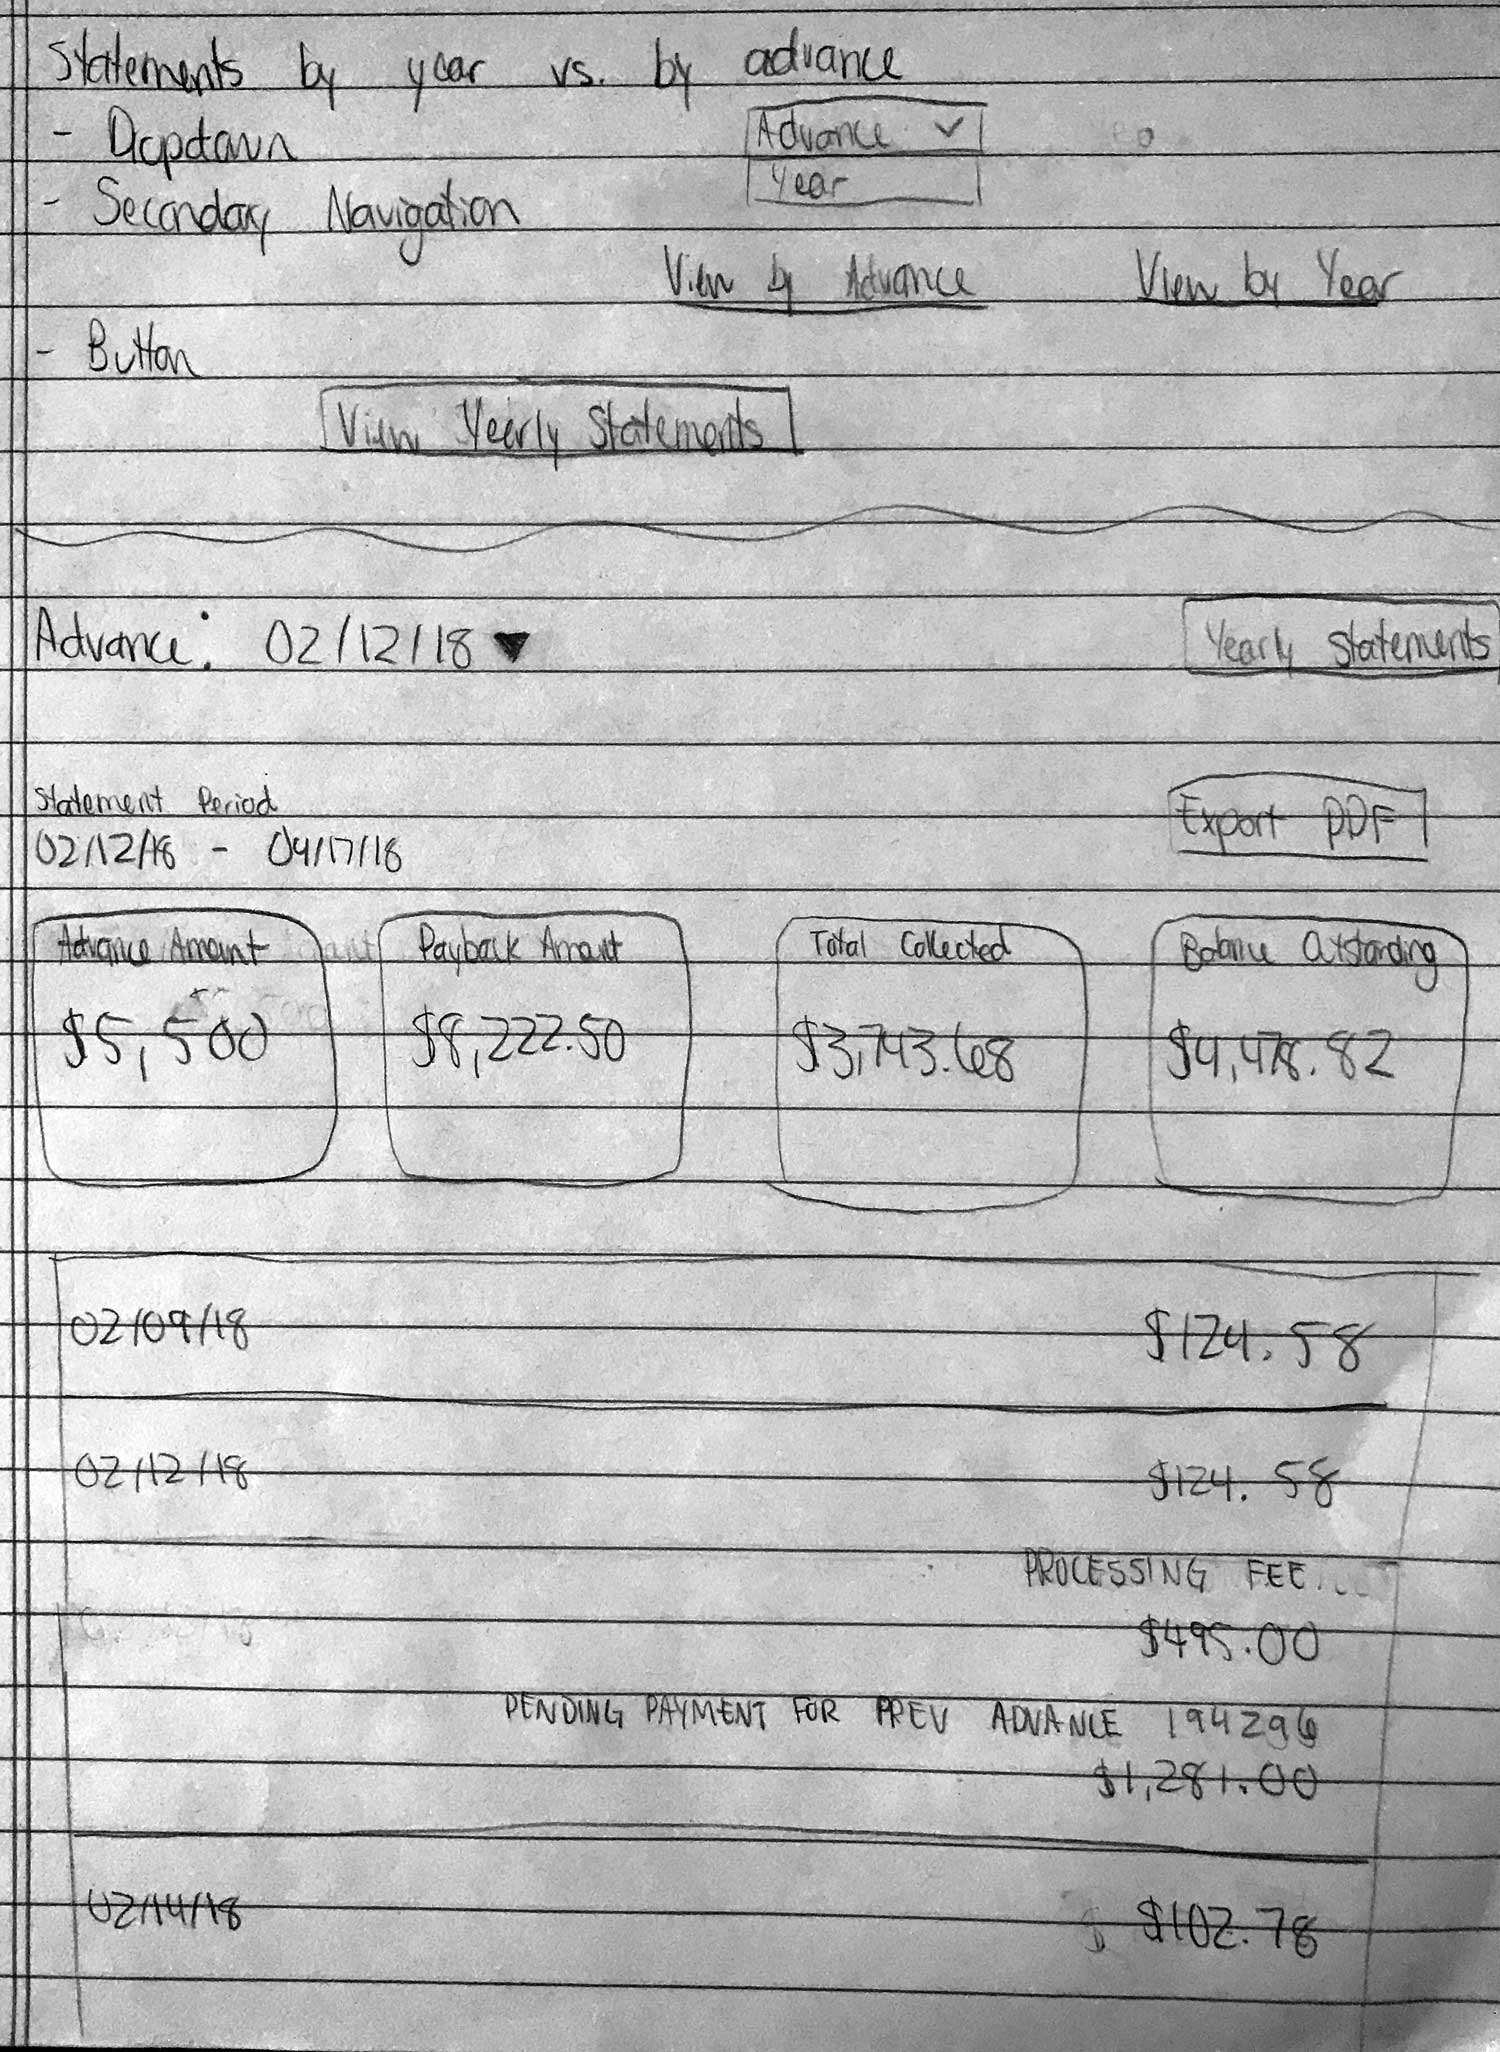 Statements by year vs. by advance
- Dropdown
Advance
Year
- Secondary Navigation
View by Advance View by Year
- Button
View Yearly Statements
Advance: 02/12/18 ▼ Yearly Statements
Statement Period
02/12/18 - 04/17/18
Export PDF
Advance Amount Payback Amount Total Collected Balance Outstanding
$5,500 $8,222.50 $3,743.68 $4,478.82
02/09/18 $124.58
02/12/18 $124.58
PROCESSING FEE
$495.00
PENDING PAYMENT FOR PREV ADVANCE 194296
$1,281.00
02/14/18 $102.78